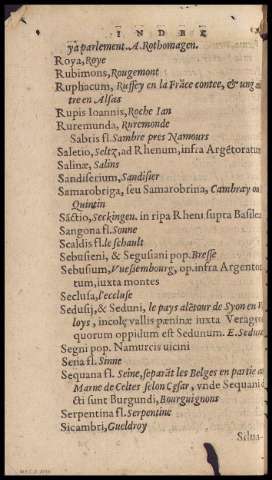 INDEX
ya parlement. A. Rothomagen.
Roya, Roye
Rubimons, Rougemont
Ruphacum, Ruffey en la Frãce contee, & ung au
tre en Alsas
Rupis Ioannis, Roche Ian
Ruremunda, Ruremonde
Sabris fl. Sambre pres Namours
Saletio, Seltz, ad Rhenum, infra Argẽtoratum
Salinæ, Salins
Sandiserium, Sandisier
Samarobriga, seu Samarobrina, Cambray ou S.
Quintin
Sãctio, Seckingen. in ripa Rheni supra Basilea
Sangona fl. Sonne
Scaldis fl. le schault
Sebusieni, & Segusiani pop. Bresse
Sebusium, VVeissembourg, op. infra Argentor
tum, iuxta montes
Seclusa, l'eccluse
Sedusij, & Seduni, le pays alẽtour de Syon en V
loys, incolę vallis pæninæ iuxta Veragro
quorum oppidum est Sedunum. E. Sedune
Segni pop. Namurcis uicini
Sena fl. Sinne
Sequana fl. Seine, separãt les Belges en partie a
Marne de Celtes selon Cęsar, vnde Sequani d
cti sunt Burgundi, Bourguignons
Serpentina fl. Serpentine
Sicambri, Gueldroy
Silua-